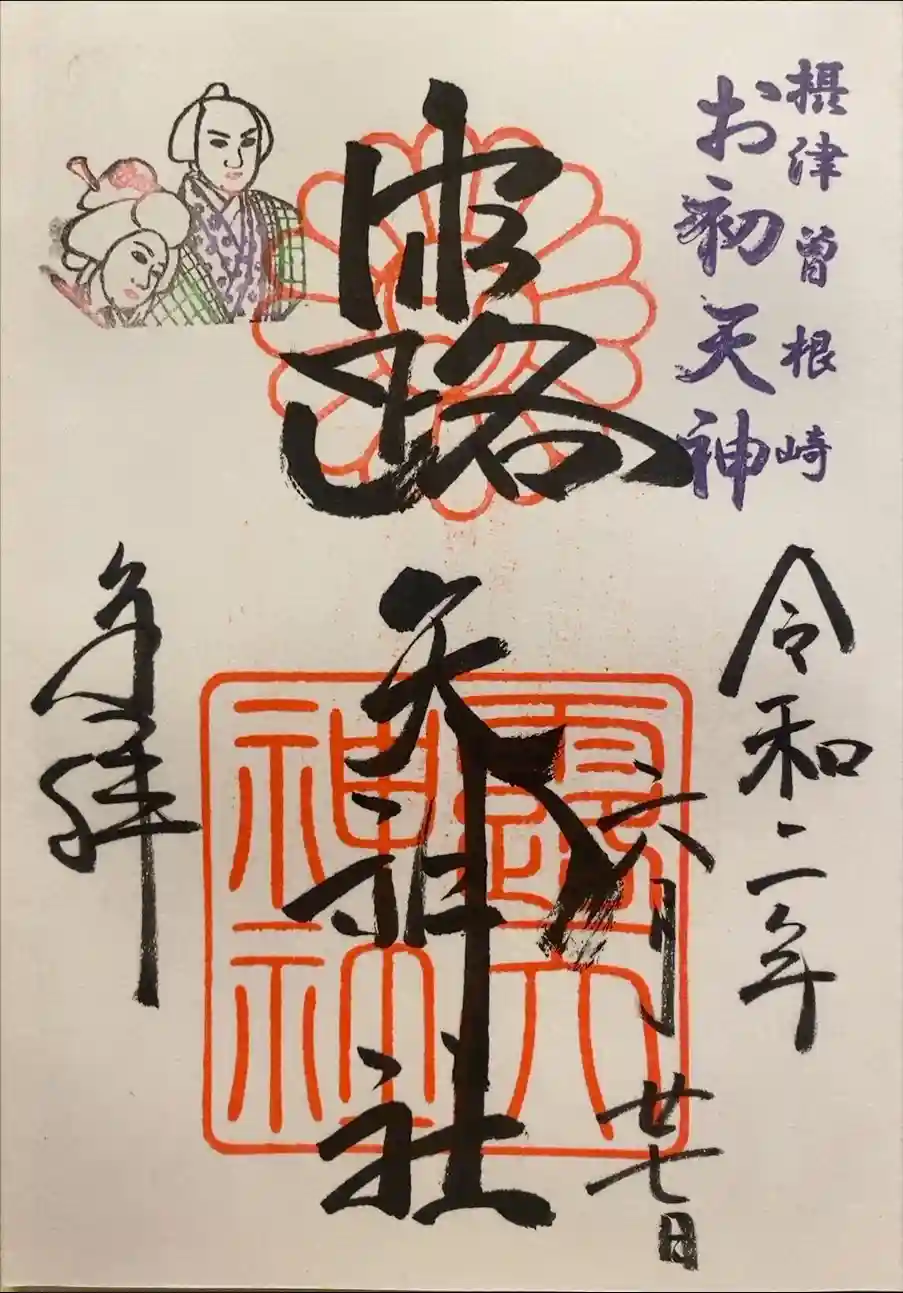 摂津曽根崎
お初天神
令和二年
六月廿七日
露天神社
奉拝
露天神社